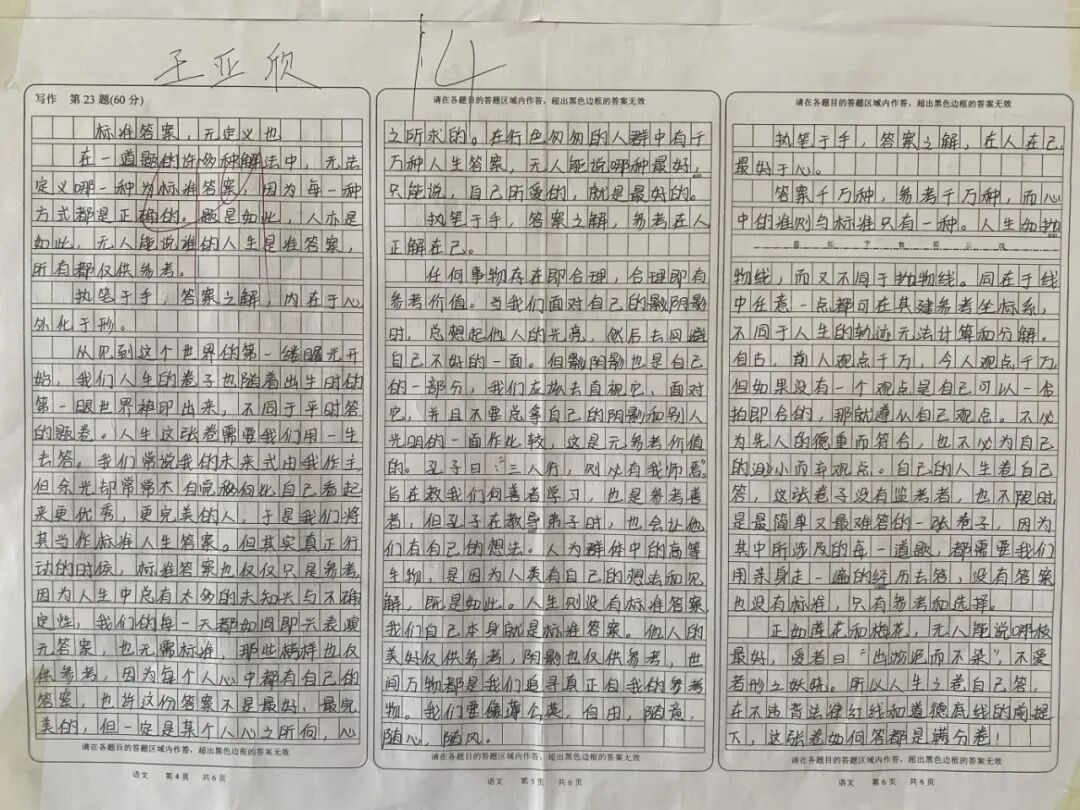 王亚欣
14
写作 第23题(60分)
标准答案，无定义也
在一道题的许多种解法中，无法
定义哪一种为标准答案，因为每一种
方式都是正确的。题是如此，人亦是
如此，无人能说谁的人生是准答案，
所有都仅供参考。
执笔于手，答案之解，内在于心
外化于形。
从见到这个世界的第一缕曙光开
始，我们人生的卷子也随着出生时的
第一眼世界印出来，不同于平时答
的题卷。人生这张卷需要我们用一生
去答。我们常说我的未来式由我作主
但余光却常常不自觉移向比自己看起
来更优秀，更完美的人，于是我们将
其当作标准人生答案。但其实真正行
动的时候，标准答案也仅仅只是参考
因为人生中总有太多的未知兴与不确
定性，我们的每一天都如同即兴表演
无答案，也无需标准，那些榜样也仅
供参考，因为每个人心中都有自己的
答案，也许这份答案不是最好，最完
美的，但一定是某个人心之所向，心
请在各题目的答题区域内作答，超出黑色边框的答案无效
语文 第4页 共6页
请在各题目的答题区域内作答，超出黑色边框的答案无效
之所求的。在行色匆匆的人群中有千
万种人生答案，无人能说哪种最好，
只能说，自己所爱的，就是最好的。
执笔于手，答案之解，参考在人
正解在己。
任何事物存在即合理，合理即有
参考价值。当我们面对自己的阴影
时，总想起他人的光亮，然后去回避
自己不好的一面。但阴影也是自己
的一部分，我们应该去直视它，面对
它，并且不要总拿自己的阴影和别人
光明的一面作比较，这是无参考价值
的。孔子曰："三人行，则必有我师焉"
旨在教我们向善者学习，也是参考善
者，但孔子在教导弟子时，也会让他
们有自己的想法。人为群体中的高等
生物，是因为人类有自己的想法和见
解，既是如此。人生则没有标准答案
我们自己本身就是标准答案。他人的
美好仅供参考，阴影也仅供参考，世
间万物都是我们追寻真正自我的参考
物。我们要像蒲公英，自由，随意，
随心，随风。
请在各题目的答题区域内作答，超出黑色边框的答案无效
语文 第5页 共6页
请在各题目的答题区域内作答，超出黑色边框的答案无效
执笔于手，答案之解，在人在己
最好于心。
答案千万种，参考千万种，而心
中的准则与标准只有一种。人生如抛
物线，而又不同于抛物线。同在于线
中任意一点都可在其建参考坐标系，
不同于人生的轨迹无法计算而分解。
自古，前人观点千万，今人观点千万
但如果没有一个观点是自己可以一拿
拍即合的，那就遵从自己观点。不必
为先人的德重而答合，也不必为自己
的渺小而弃观点。自己的人生卷自己
答，这张卷子没有监考者，也不限时
是最简单又最难答的一张卷子，因为
其中所涉及的每一道题，都需要我们
用亲身走一遍的经历去答，没有答案
也没有标准，只有参考和选择。
正如莲花和梅花，无人能说哪枝
最好，爱者曰"出淤泥而不染"，不爱
者形之妖娆。所以人生之卷自己答，
在不违背法律红线和道德底线的前提
下，这张卷如何答都是满分卷！
请在各题目的答题区域内作答，超出黑色边框的答案无效
语文 第6页 共6页